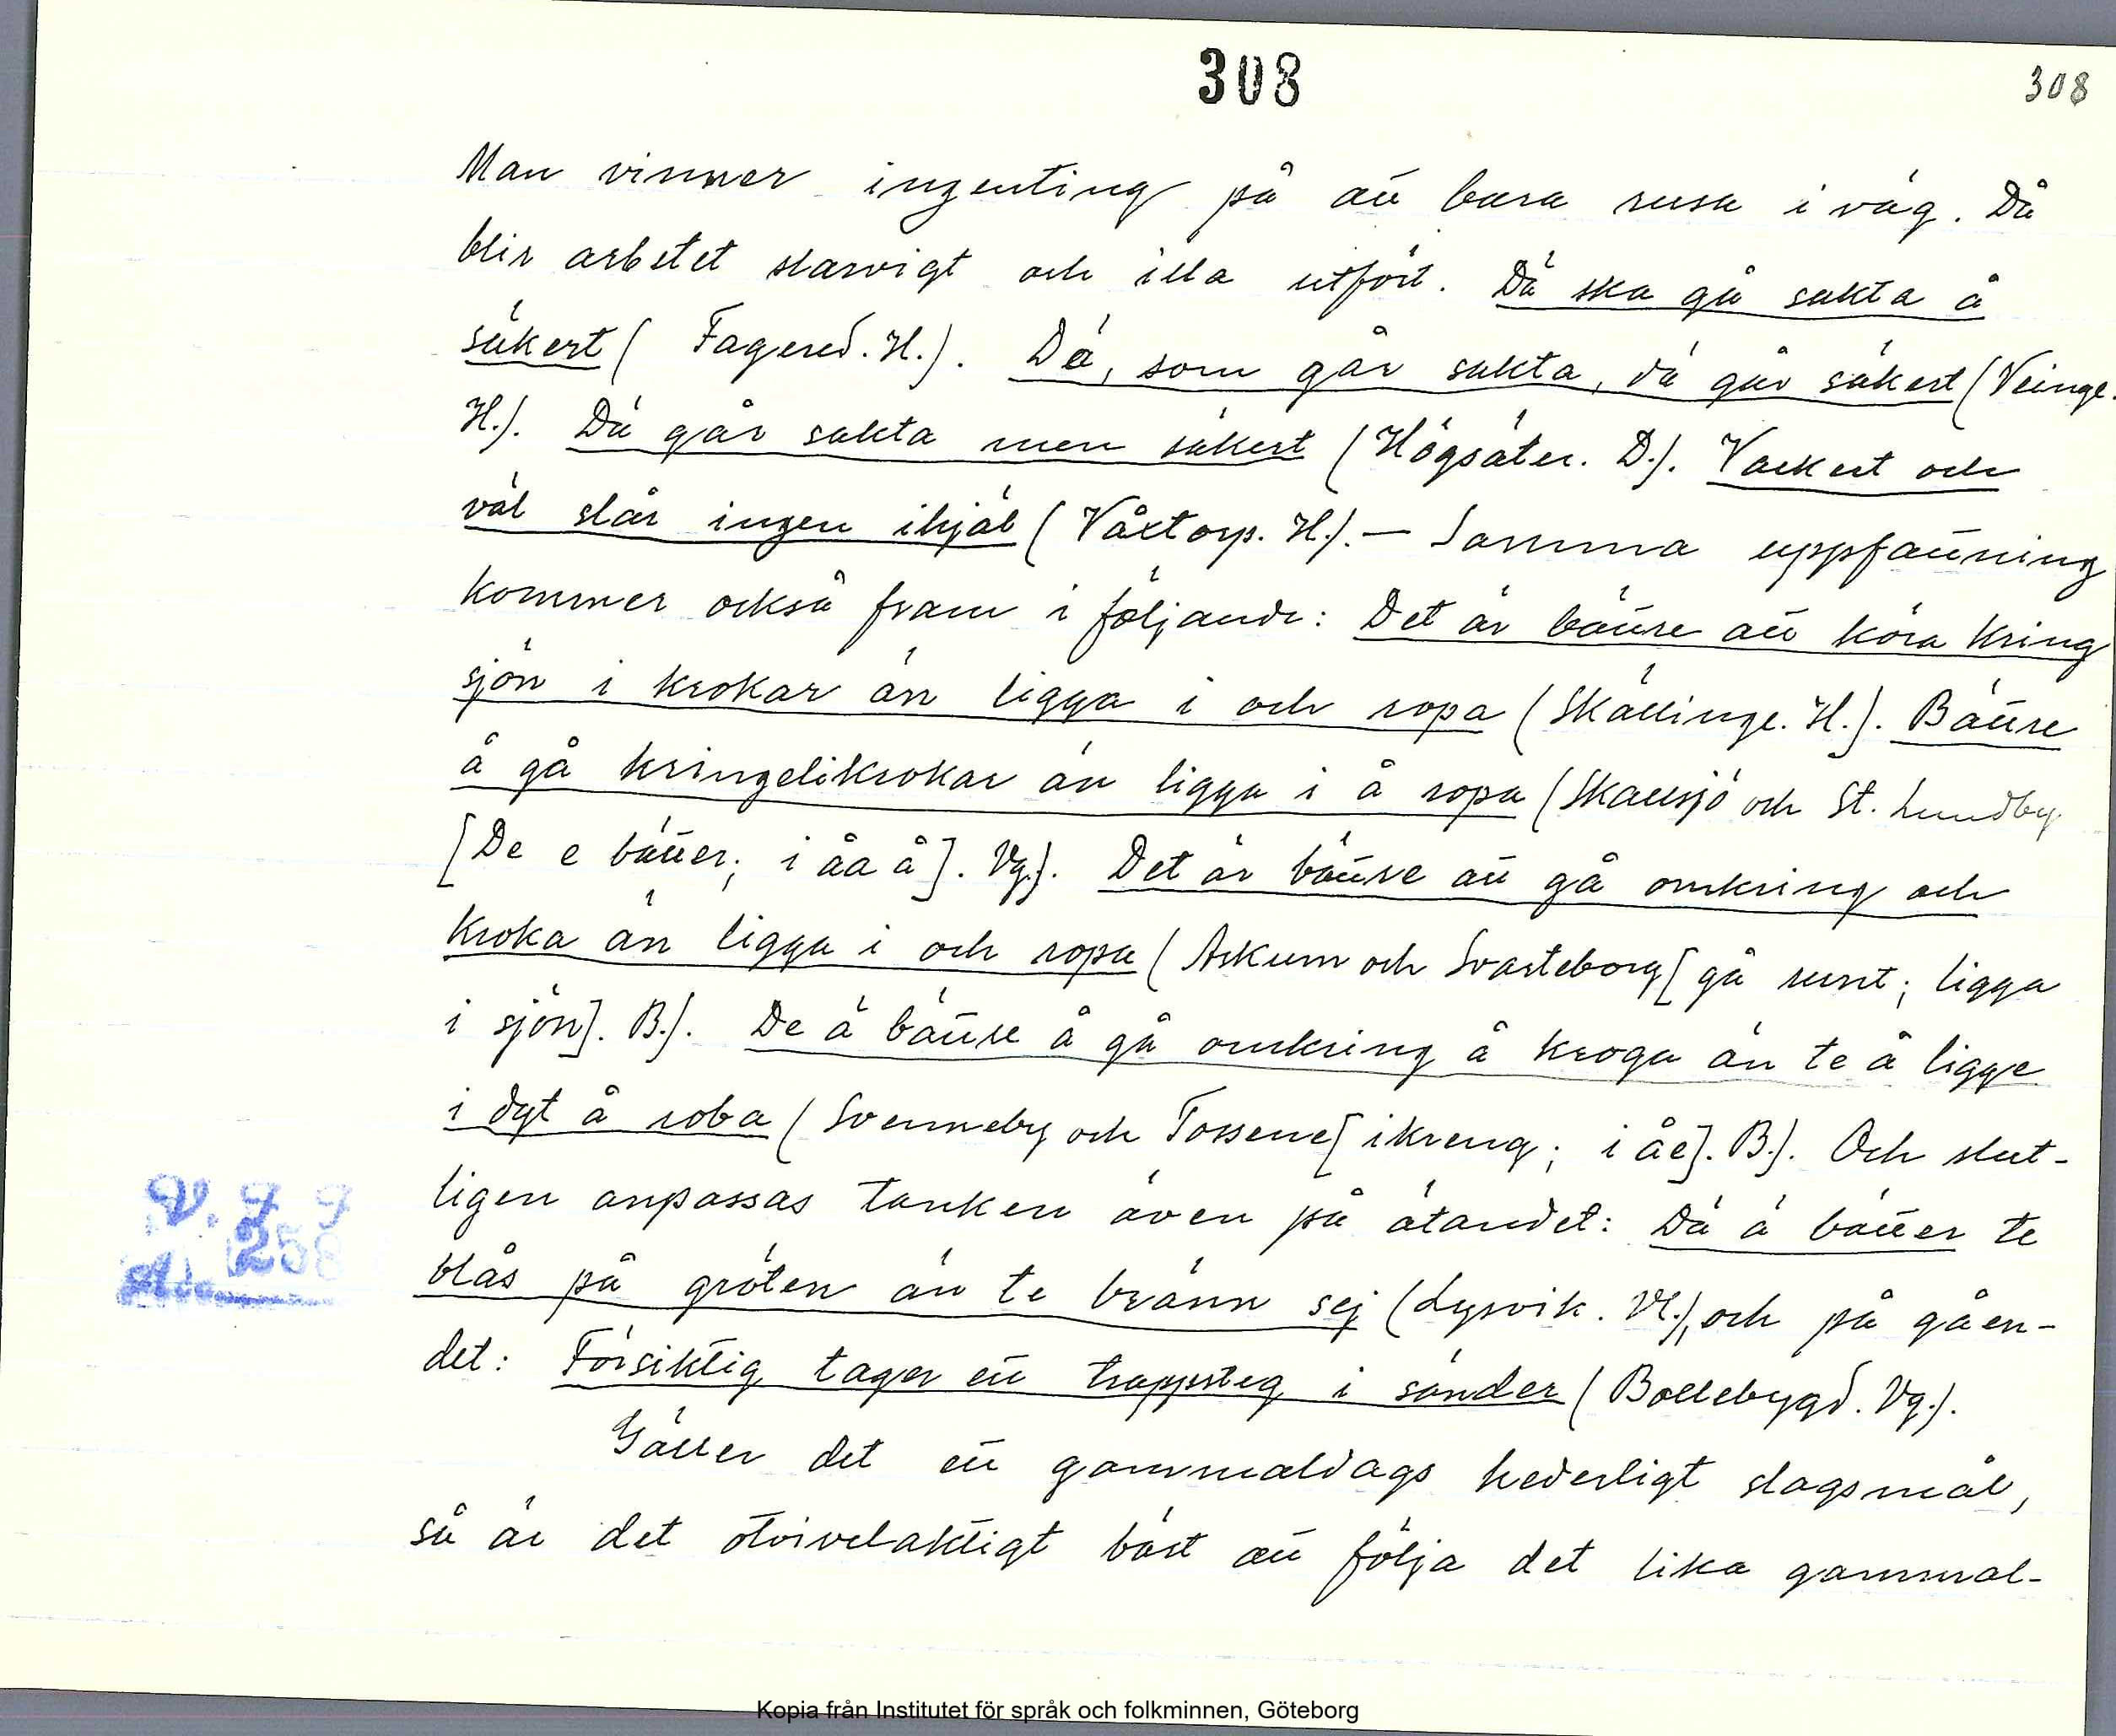 308
308
Man vinner ingenting på att bara rusa i väg. Då
blir arbetet slarvigt och illa utfört. Dä ska gå sakta å
säkert (Fagered. H.). Dä, som går sakta, dä går säkert (Veinge.
H.). Dä går sakta men säkert (Högsäter. D.). Vackert och
väl slår ingen ihjäl (Våxtorp. H.). — Samma uppfattning
kommer också fram i följande: Det är bättre att köra kring
sjön i krokar än ligga i och ropa (Skällinge. H.). Bättre
å gå kringelikrokar än ligga i å ropa (Skallsjö och St. Lundby
[De e bätter; i åa å]. Vg.). Det är bättre att gå omkring och
kroka än ligga i och ropa (Askum och Svarteborg [gå runt; ligga
i sjön]. B.). De ä bättre å gå omkring å kroga än te å ligge
i dyt å roba (Svenneby och Tossene [ikreng; i åe]. B.). Och slut-
ligen anpassas tanken även på ätandet: Dä ä bätter te
blås på gröten än te bränn sej (Lysvik. Vl.), och på gåen-
det: Försiktig tager ett trappsteg i sänder (Bollebygd. Vg.).
Gäller det ett gammaldags hederligt slagsmål,
så är det otvivelaktigt bäst att följa det lika gammal-
V. F F
258
Kopia från Institutet för språk och folkminnen, Göteborg